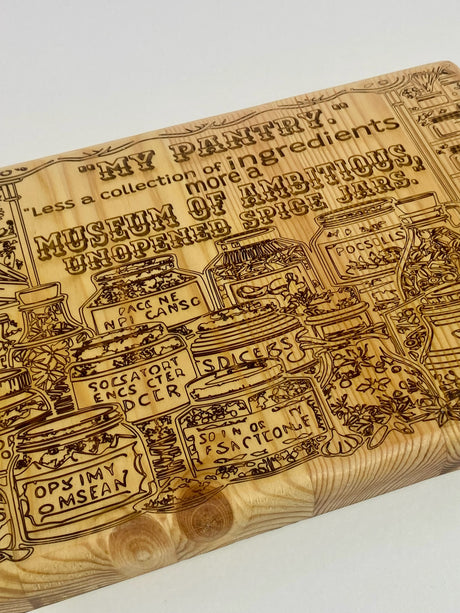 "MY PANTRY."
"Less a collection of ingredients
more a
MUSEUM OF AMBITIOUS,
UNOPENED SPICE JARS.
DACC NE
NPI CANSO
POCSOLLS
SOCSATORT
ENCS CTER
DCER
SDICERS
OPSIMY
OMSEAN